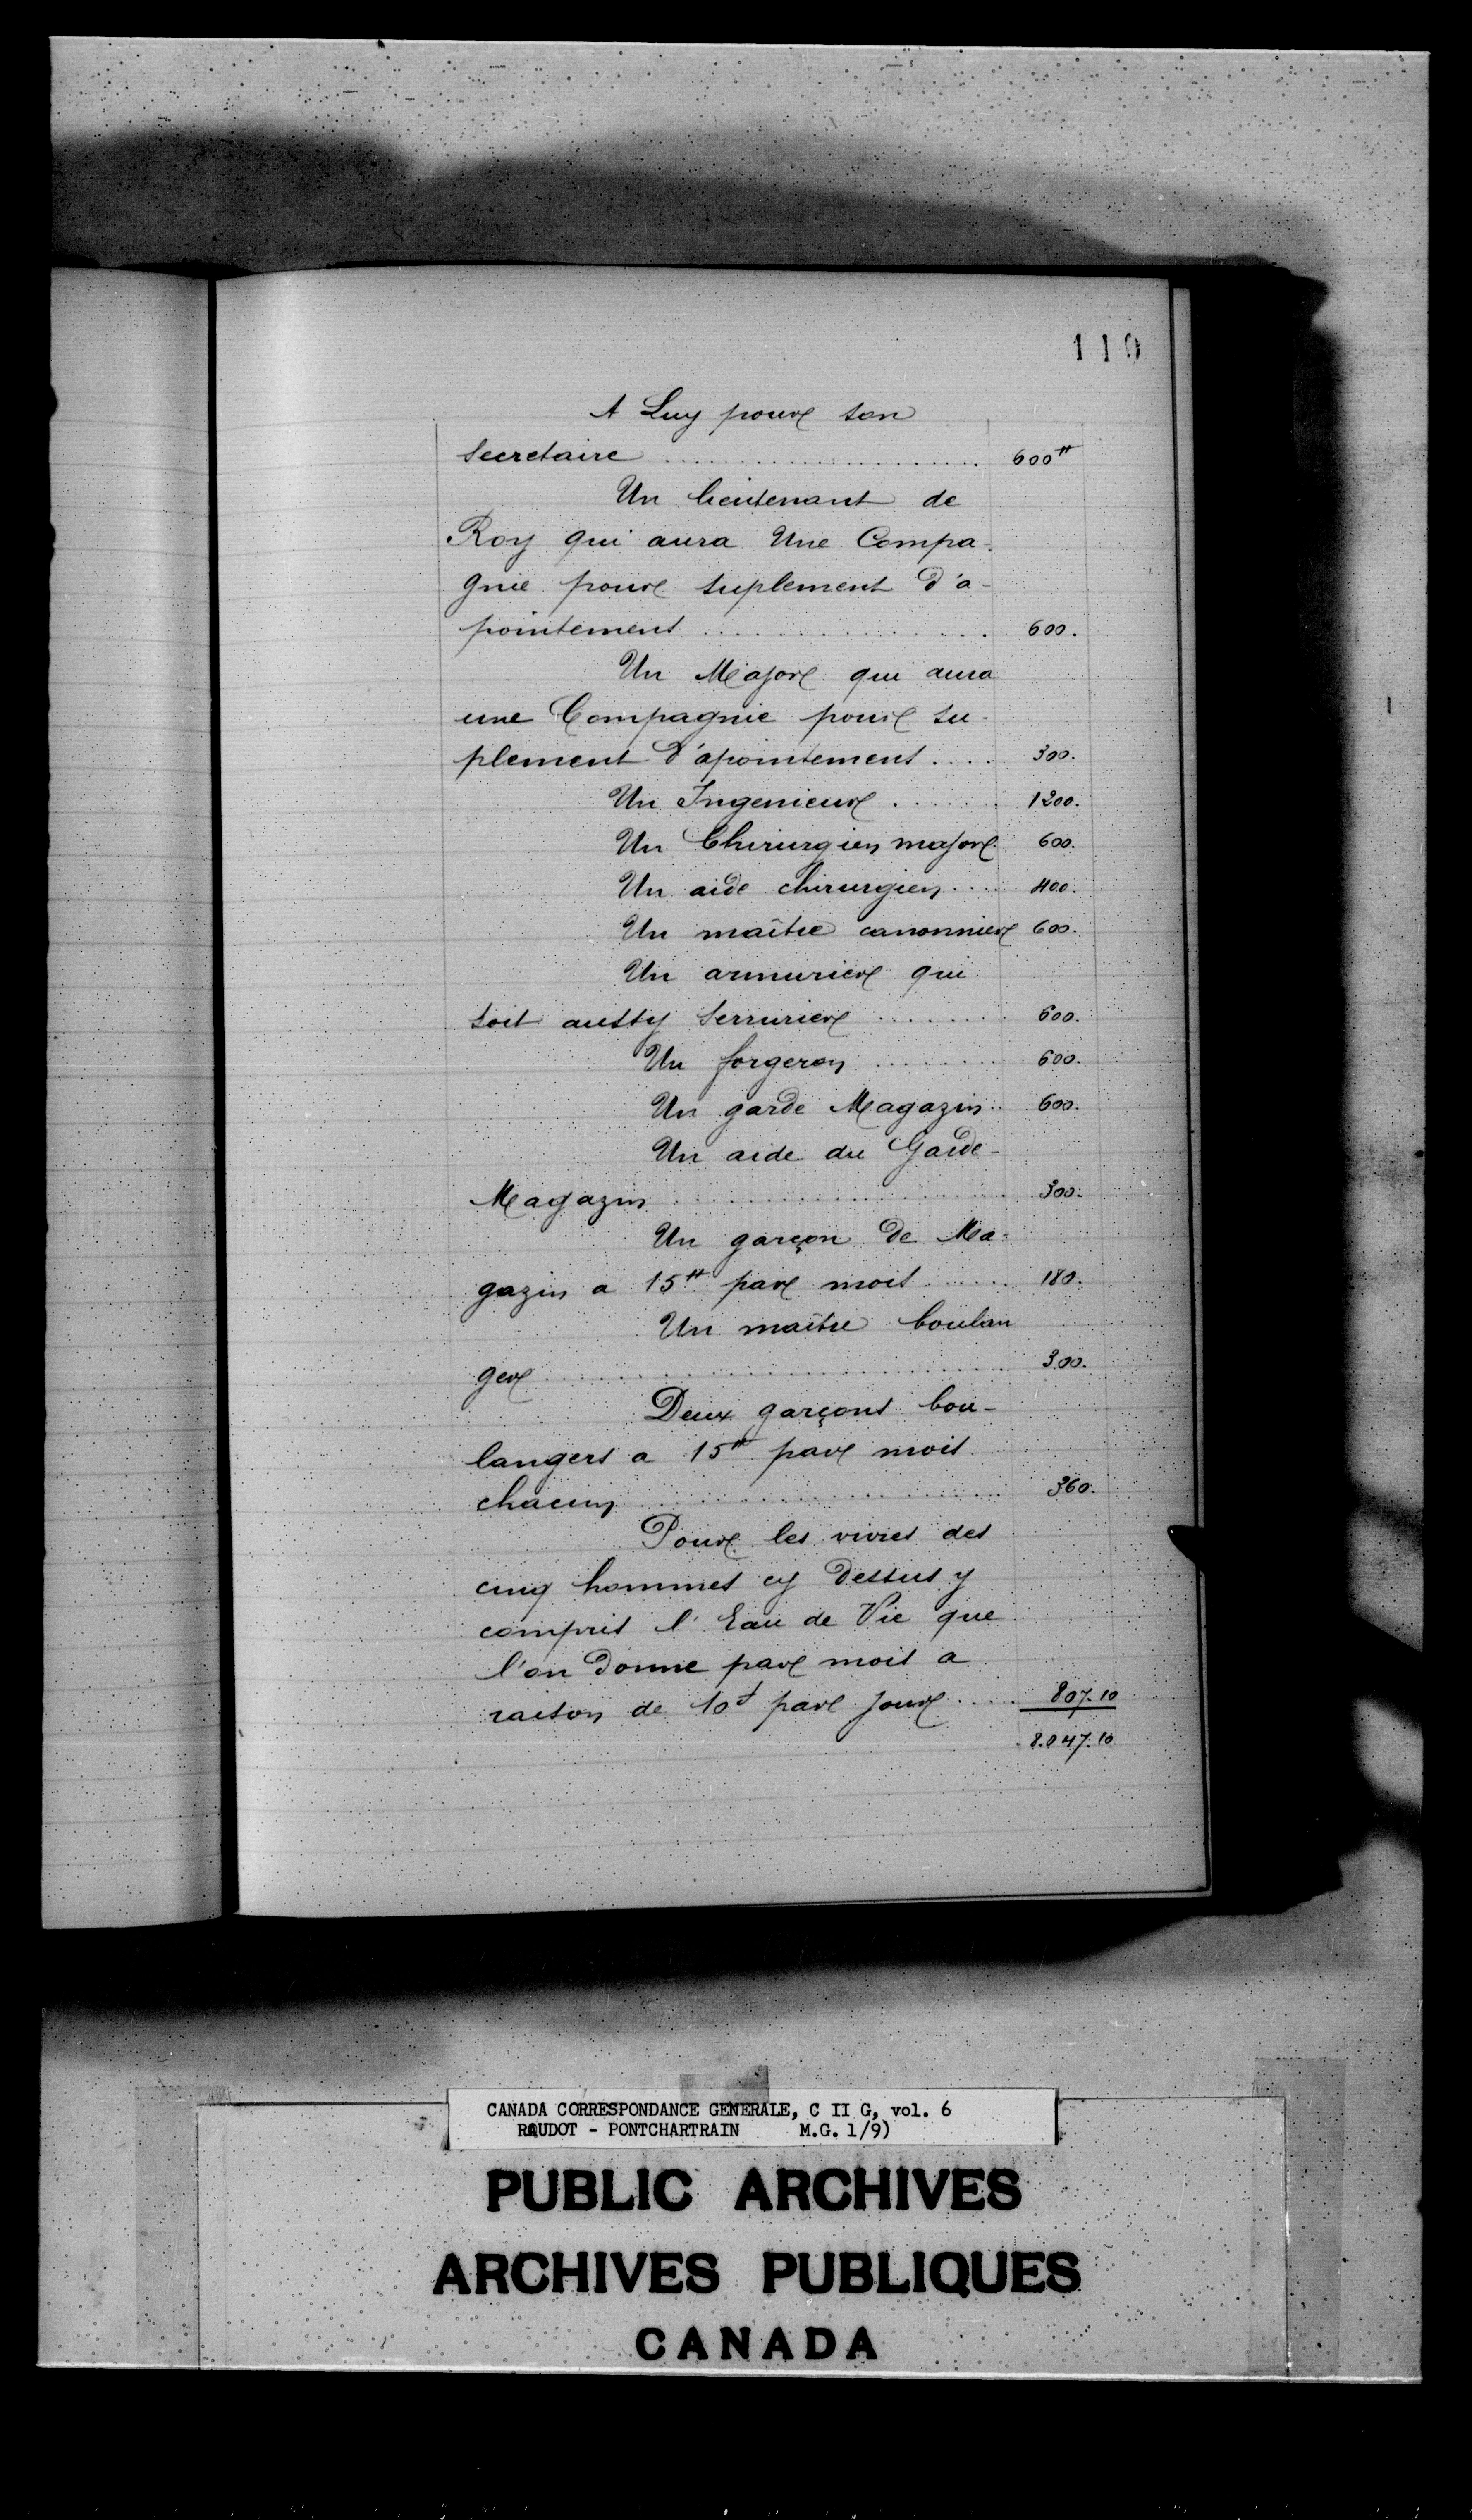 110
A Luy pour son
secretaire .................... 600tt
Un lieutenant de
Roy qui aura Une Compa-
gnie pour suplement d'a-
pointement ................ 600.
Un Major qui aura
une Compagnie pour su-
plement d'apointement .... 300.
Un Ingenieur ....... 1200.
Un Chirurgien major 600.
Un aide chirurgien .... 400.
Un maître canonnier 600.
Un armurier qui
soit aussy serrurier ........ 600.
Un forgeron ........ 600.
Un garde Magazin .. 600.
Un aide du Garde-
Magazin .................... 300.
Un garçon de Ma-
gazin a 15tt par mois ....... 180.
Un maître boulan
ger ............................ 300.
Deux garçons bou-
langers a 15tt par mois
chacun ........................ 360.
Pour les vivres des
cinq hommes cy dessus y
compris l'Eau de Vie que
l'on donne par mois a
raison de 10s par jour .... 807.10
8.047.10
CANADA CORRESPONDANCE GENERALE, C II G, vol. 6
RAUDOT - PONTCHARTRAIN M.G. 1/9)
PUBLIC ARCHIVES
ARCHIVES PUBLIQUES
CANADA